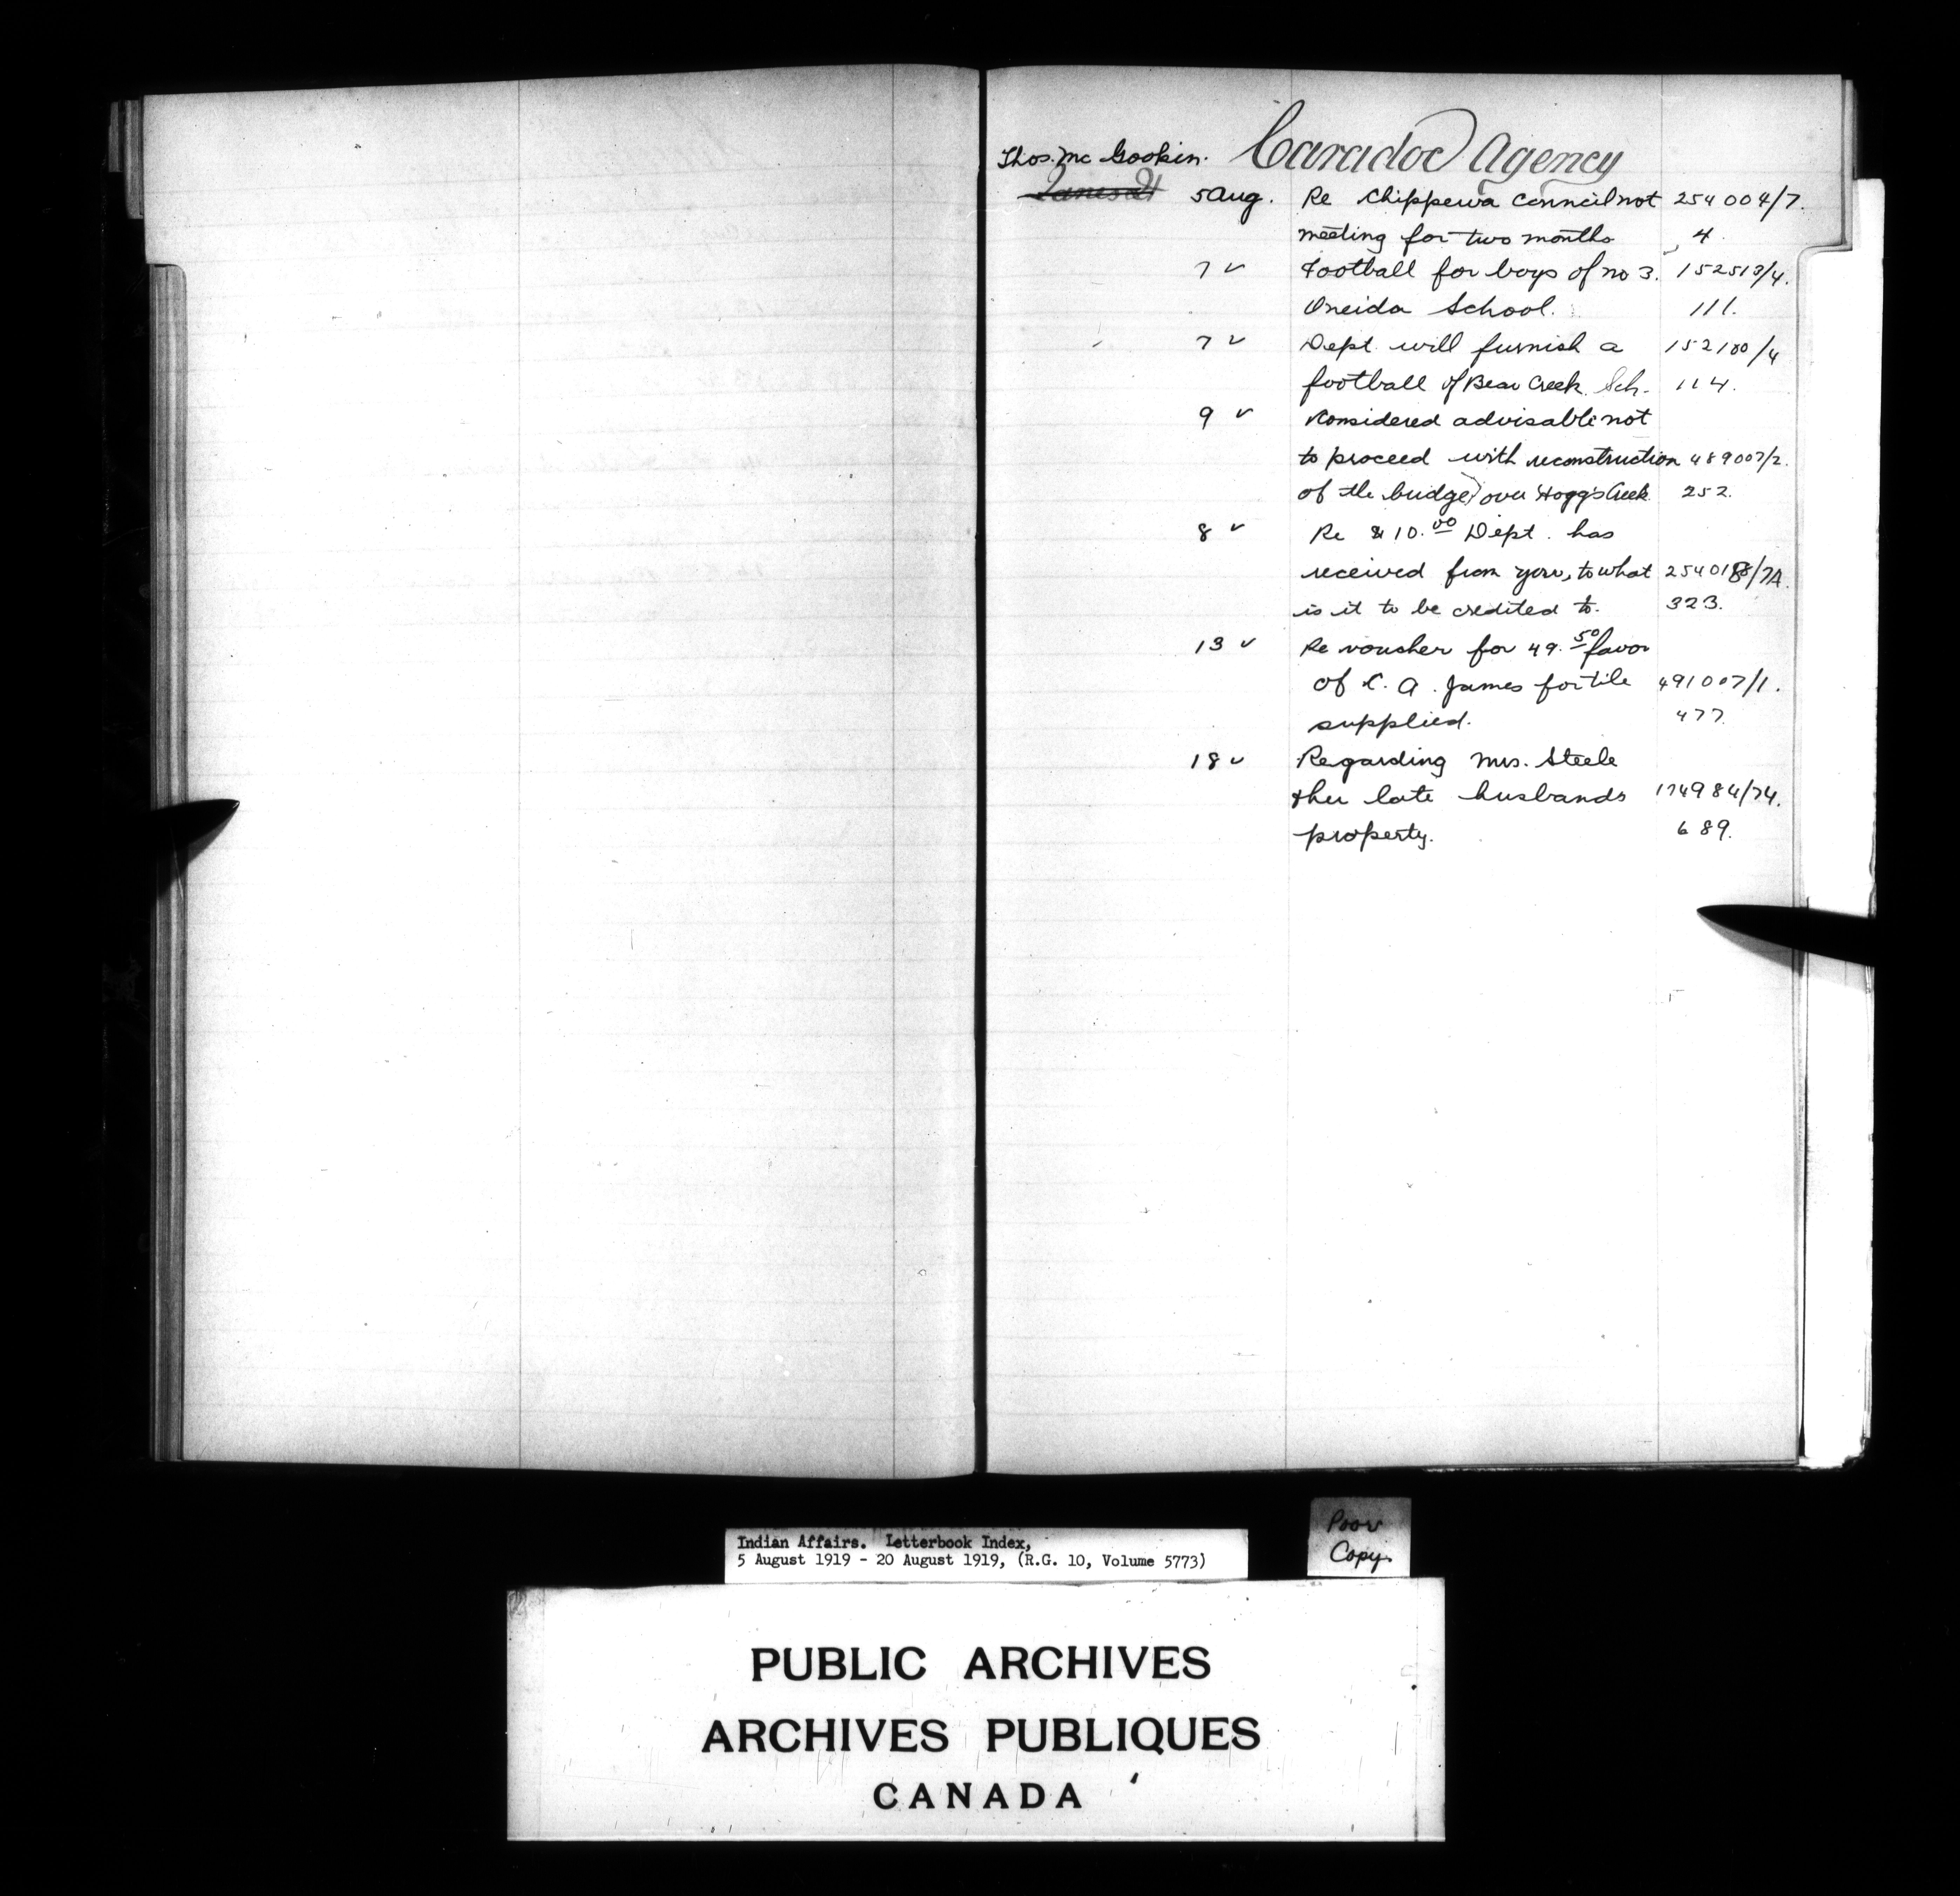 Caradoc Agency
Thos. Mc Gookin.
5 Aug. Re Chippewa Council not 254004/7.
meeting for two months 4.
7 v Football for boys of no 3. 152513/4.
Oneida School. 111.
7 v Dept. will furnish a 152100/4
football of Bear Creek Sch. 114.
9 v Considered advisable not
to proceed with reconstruction 489007/2.
of the bridge over Hogg's Creek 252.
8 v Re $10.00 Dept. has
received from you, to what 254018/7A.
is it to be credited to. 323.
13 v Re voucher for 49.50 favor
of C. A. James for tile 491007/1.
supplied. 477.
18 v Regarding Mrs. Steele
& her late husbands 174984/74.
property. 689.
Indian Affairs. Letterbook Index,
5 August 1919 - 20 August 1919, (R.G. 10, Volume 5773)
Poor
Copy.
PUBLIC ARCHIVES
ARCHIVES PUBLIQUES
CANADA